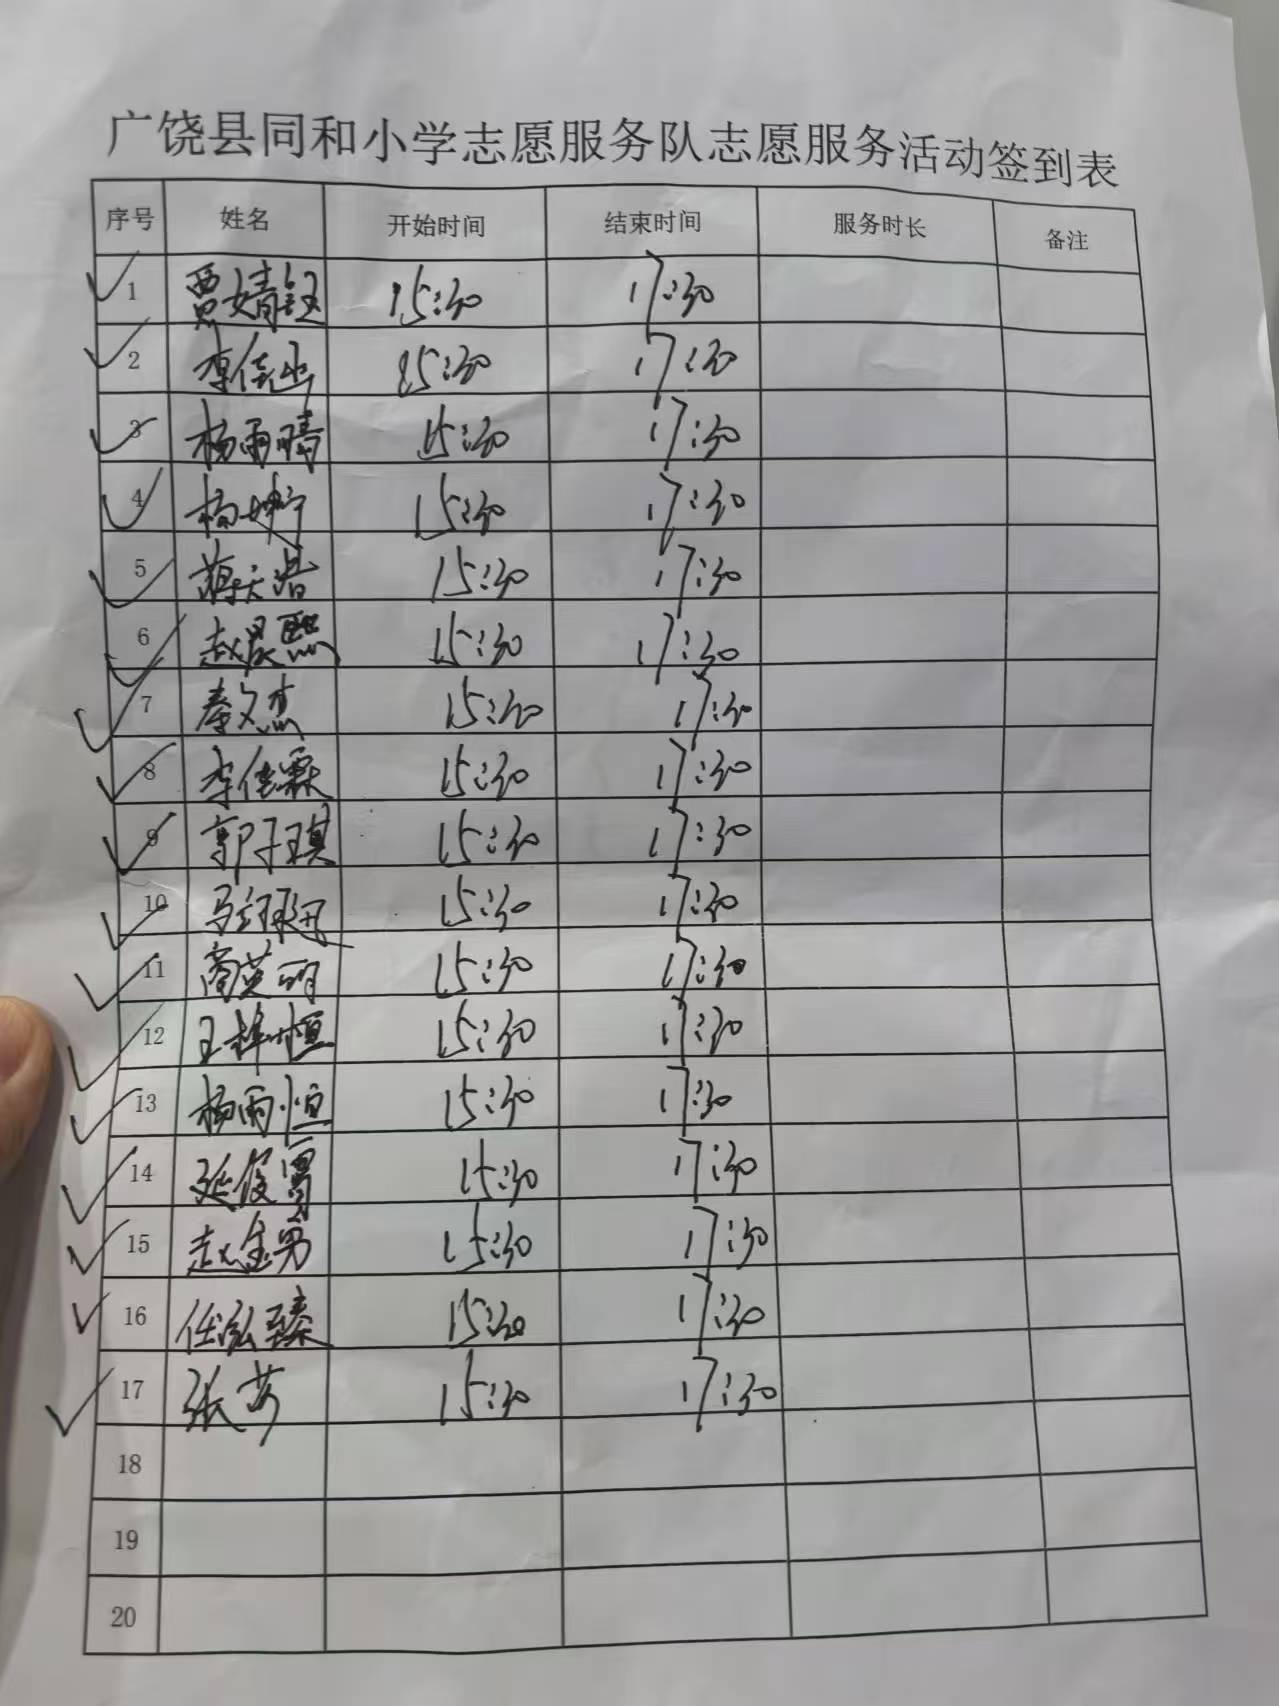 广饶县同和小学志愿服务队志愿服务活动签到表
序号 姓名 开始时间 结束时间 服务时长 备注
1 贾婧钰 15:30 17:30
2 李佳 15:30 17:30
3 杨雨晴 15:30 17:30
4 杨婷 15:30 17:30
5 浩 15:30 17:30
6 赵晨熙 15:30 17:30
7 秦文杰 15:30 17:30
8 李佳霖 15:30 17:30
9 郭子琪 15:30 17:30
10 马 15:30 17:30
11 商英明 15:30 17:30
12 王梓恒 15:30 17:30
13 杨雨恒 15:30 17:30
14 延俊 15:30 17:30
15 赵金男 15:30 17:30
16 任泓臻 15:30 17:30
17 张 15:30 17:30
18
19
20